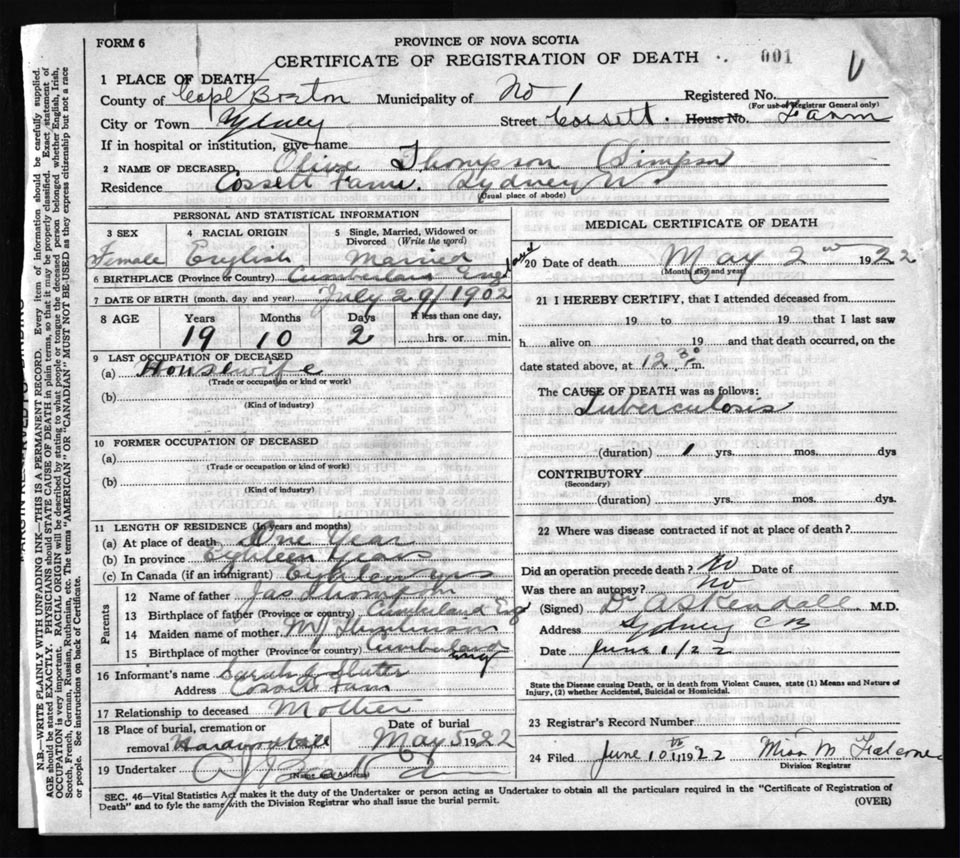 FORM 6
PROVINCE OF NOVA SCOTIA
CERTIFICATE OF REGISTRATION OF DEATH 001
1 PLACE OF DEATH—
County of Cape Breton Municipality of No 1 Registered No.
(For use of Registrar General only)
City or Town Sydney Street Cossett. House No. Farm
If in hospital or institution, give name
2 NAME OF DECEASED Olive Thompson (Simpson
Residence Cossett Farm. Sydney N.
(Usual place of abode)
PERSONAL AND STATISTICAL INFORMATION
3 SEX 4 RACIAL ORIGIN 5 Single, Married, Widowed or Divorced (Write the word)
Female English Married
6 BIRTHPLACE (Province or Country) Cumberland Eng
7 DATE OF BIRTH (month, day and year) July 29/1902
8 AGE Years Months Days If less than one day,
19 10 2 hrs. or min.
9 LAST OCCUPATION OF DECEASED
(a) Housewife
(Trade or occupation or kind or work)
(b)
(Kind of industry)
10 FORMER OCCUPATION OF DECEASED
(a)
(Trade or occupation or kind or work)
(b)
(Kind of industry)
11 LENGTH OF RESIDENCE (In years and months)
(a) At place of death One Year
(b) In province Eighteen Years
(c) In Canada (if an immigrant) Eighteen yrs
Parents
12 Name of father Jas Thompson
13 Birthplace of father (Province or country) Cumberland Eng
14 Maiden name of mother
15 Birthplace of mother (Province or country) Cumberland Eng
16 Informant's name Sarah
Address Cossett Farm
17 Relationship to deceased Mother
18 Place of burial, cremation or removal Hardwoodhill Date of burial May 5 1922
19 Undertaker
(Name and Address)
MEDICAL CERTIFICATE OF DEATH
20 Date of death May 2nd 1922
(Month, day and year)
21 I HEREBY CERTIFY, that I attended deceased from
19 to 19 that I last saw
h alive on 19 and that death occurred, on the
date stated above, at 12.30 m.
The CAUSE OF DEATH was as follows:
Tuberculosis
(duration) 1 yrs. mos. dys
CONTRIBUTORY
(Secondary)
(duration) yrs. mos. dys.
22 Where was disease contracted if not at place of death?
Did an operation precede death? No Date of
Was there an autopsy? No
(Signed) Dr A S Kendall M.D.
Address Sydney CB
Date June 1/22
State the Disease causing Death, or in death from Violent Causes, state (1) Means and Nature of Injury, (2) whether Accidental, Suicidal or Homicidal.
23 Registrar's Record Number
24 Filed June 10th 1922 Miss M.
Division Registrar
SEC. 46—Vital Statistics Act makes it the duty of the Undertaker or person acting as Undertaker to obtain all the particulars required in the "Certificate of Registration of
Death" and to fyle the same with the Division Registrar who shall issue the burial permit. (OVER)
N.B.—WRITE PLAINLY WITH UNFADING INK—THIS IS A PERMANENT RECORD. Every item of information should be carefully supplied.
AGE should be stated EXACTLY. PHYSICIANS should STATE CAUSE OF DEATH in plain terms, so that it may be properly classified. Exact statement of
OCCUPATION is very important. RACIAL ORIGIN will be described by stating to what people or tongue the deceased person belonged whether English, Irish,
Scotch, French, German, Russian, Ruthenian, etc. The terms "AMERICAN" OR "CANADIAN" MUST NOT BE USED as they express citizenship but not a race
or people. See instructions on back of Certificate.